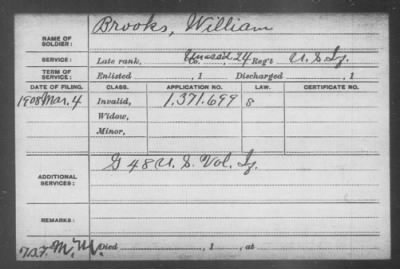 NAME OF SOLDIER: Brooks, William
SERVICE: Late rank, Unassd, 24 Reg't U. S. Iy.
TERM OF SERVICE: Enlisted , 1 Discharged , 1
DATE OF FILING. CLASS. APPLICATION NO. LAW. CERTIFICATE NO.
1908 Mar. 4 Invalid, 1.371.699 8
Widow,
Minor,
ADDITIONAL SERVICES: G 48 U. S. Vol. Iy.
REMARKS:
Died , 1 , at